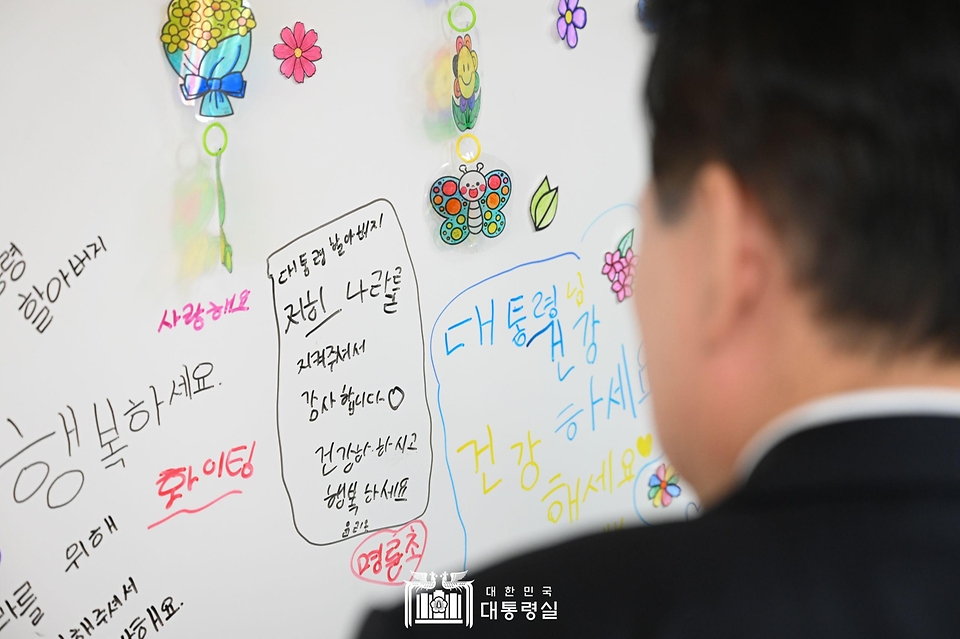 할아버지
사랑해요
행복하세요.
화이팅
위해
해주셔서
대통령 할아버지
저희 나라를
지켜주셔서
감사합니다
건강하시고
행복하세요
명륜초
대통령님
건강
하세요
건강
해세요
대한민국
대통령실